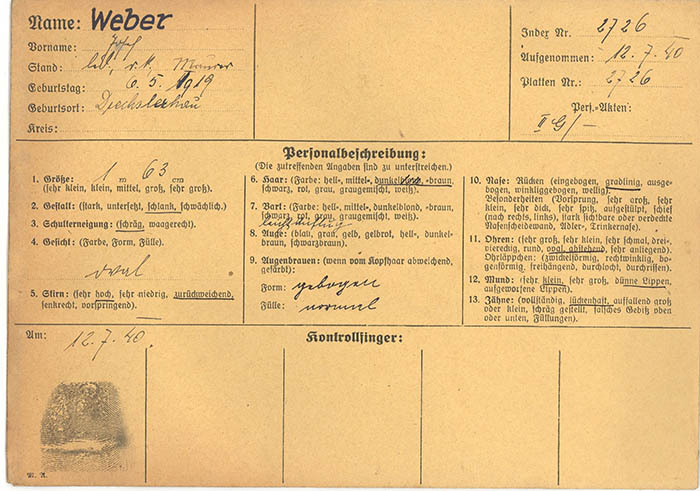 Name: Weber
Vorname: Josef
Stand: led., r.k., Maurer
Geburtstag: 6.5.1919
Geburtsort:
Kreis:
Index Nr. 2726
Aufgenommen: 12.7.40
Platten Nr.: 2726
Pers.-Akten:
II G/-
Personalbeschreibung:
(Die zutreffenden Angaben sind zu unterstreichen.)
1. Größe: 1 m 63 cm
(sehr klein, klein, mittel, groß, sehr groß).
2. Gestalt: (stark, untersetzt, schlank, schwächlich).
3. Schulterneigung: (schräg, waagerecht).
4. Gesicht: (Farbe, Form, Fülle).
oval
5. Stirn: (sehr hoch, sehr niedrig, zurückweichend,
senkrecht, vorspringend).
6. Haar: (Farbe: hell-, mittel-, dunkelblond, -braun,
schwarz, rot, grau, graugemischt, weiß).
7. Bart: (Farbe: hell-, mittel-, dunkelblond, -braun,
schwarz, rot, grau, graugemischt, weiß).
8. Auge: (blau, grau, gelb, gelbrot, hell-, dunkel-
braun, schwarzbraun).
9. Augenbrauen: (wenn vom Kopfhaar abweichend,
gefärbt):
Form: gebogen
Fülle: normal
10. Nase: Rücken (eingebogen, gradlinig, ausge-
bogen, winkliggebogen, wellig).
Besonderheiten (Vorsprung, sehr groß, sehr
klein, sehr dick, sehr spitz, aufgestülpt, schief
(nach rechts, links), stark sichtbare oder verdeckte
Nasenscheidewand, Adler-, Trinkernase).
11. Ohren: (sehr groß, sehr klein, sehr schmal, drei-
viereckig, rund, oval, abstehend, sehr anliegend).
Ohrläppchen: (zwickelförmig, rechtwinklig, bo-
genförmig, freihängend, durchlocht, durchrissen).
12. Mund: (sehr klein, sehr groß, dünne Lippen,
aufgeworfene Lippen).
13. Zähne: (vollständig, lückenhaft, auffallend groß
oder klein, schräg gestellt, falsches Gebiß oben
oder unten, Füllungen).
Am: 12.7.40.
Kontrollfinger:
W. A.